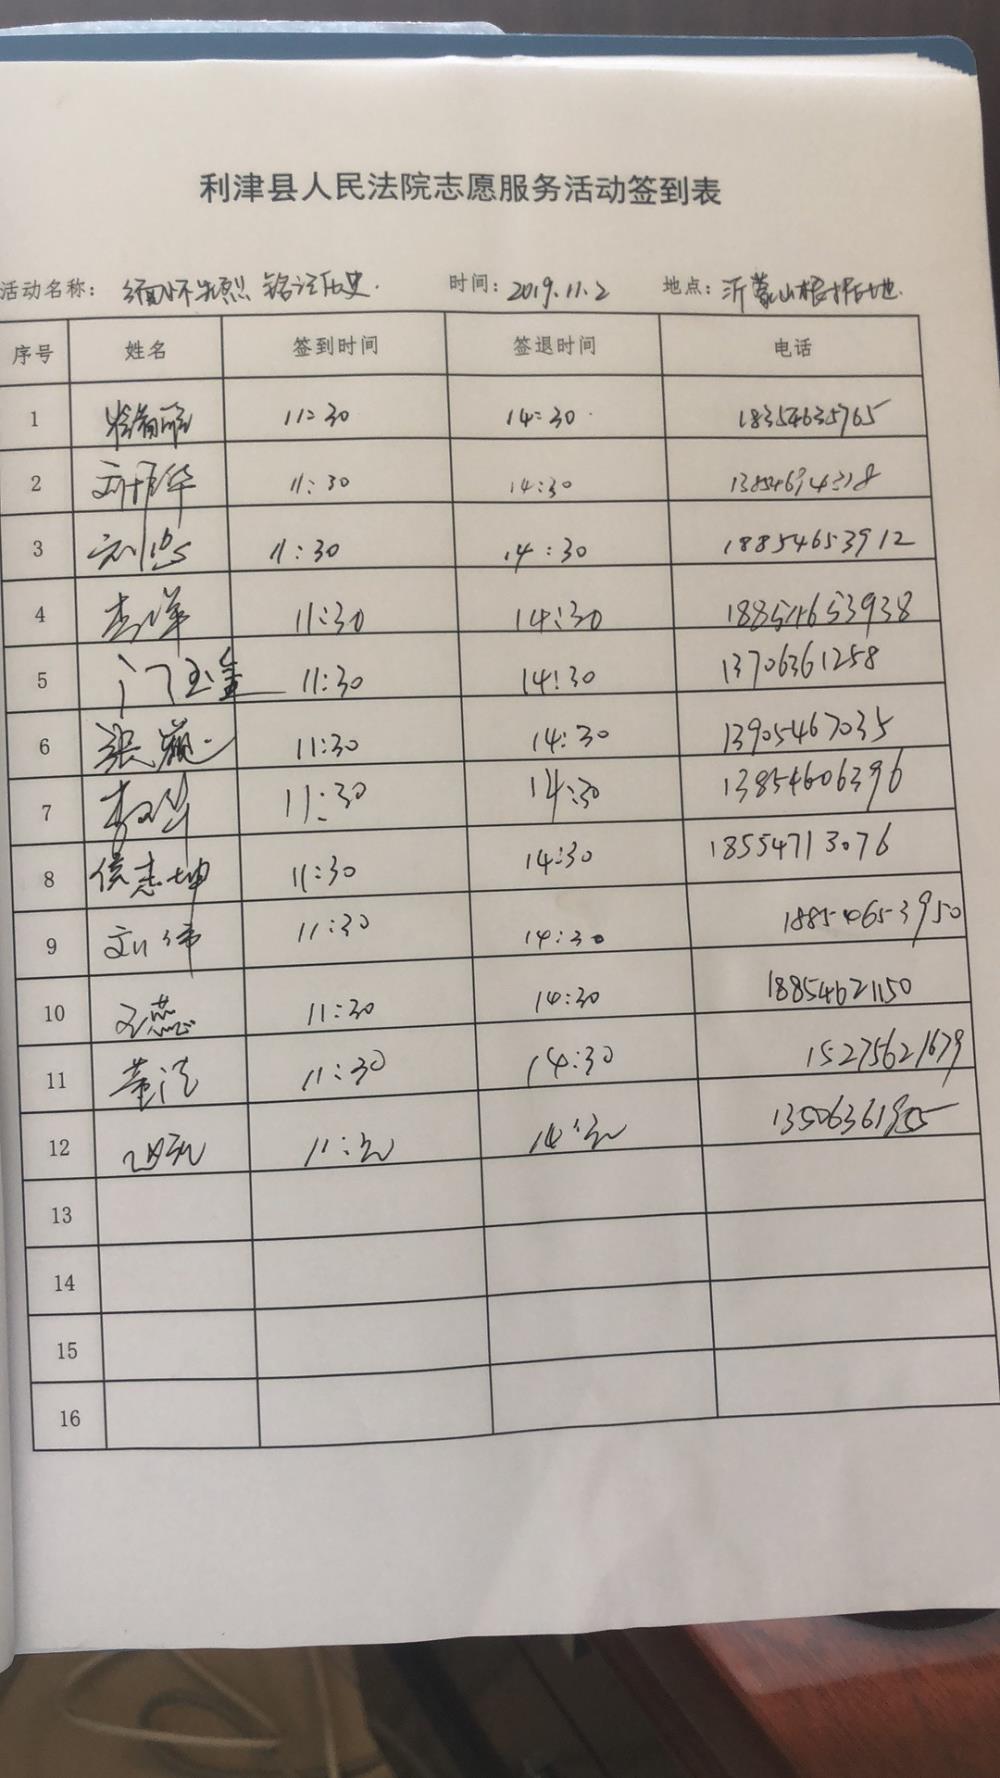 利津县人民法院志愿服务活动签到表
活动名称: 缅怀先烈 铭记历史. 时间: 2019.11.2 地点: 沂蒙山根据地.
序号 姓名 签到时间 签退时间 电话
1 11:30 14:30 18354635765
2 11:30 14:30
3 11:30 14:30 18854653912
4 11:30 14:30 18854653938
5 门玉金 11:30 14:30 13706361258
6 11:30 14:30 13905467035
7 11:30 14:30 13854606396
8 侯志坤 11:30 14:30 18554713076
9 刘伟 11:30 14:30 18854653950
10 11:30 14:30 18854621150
11 董洁 11:30 14:30 15275621679
12 11:30 14:30
13
14
15
16